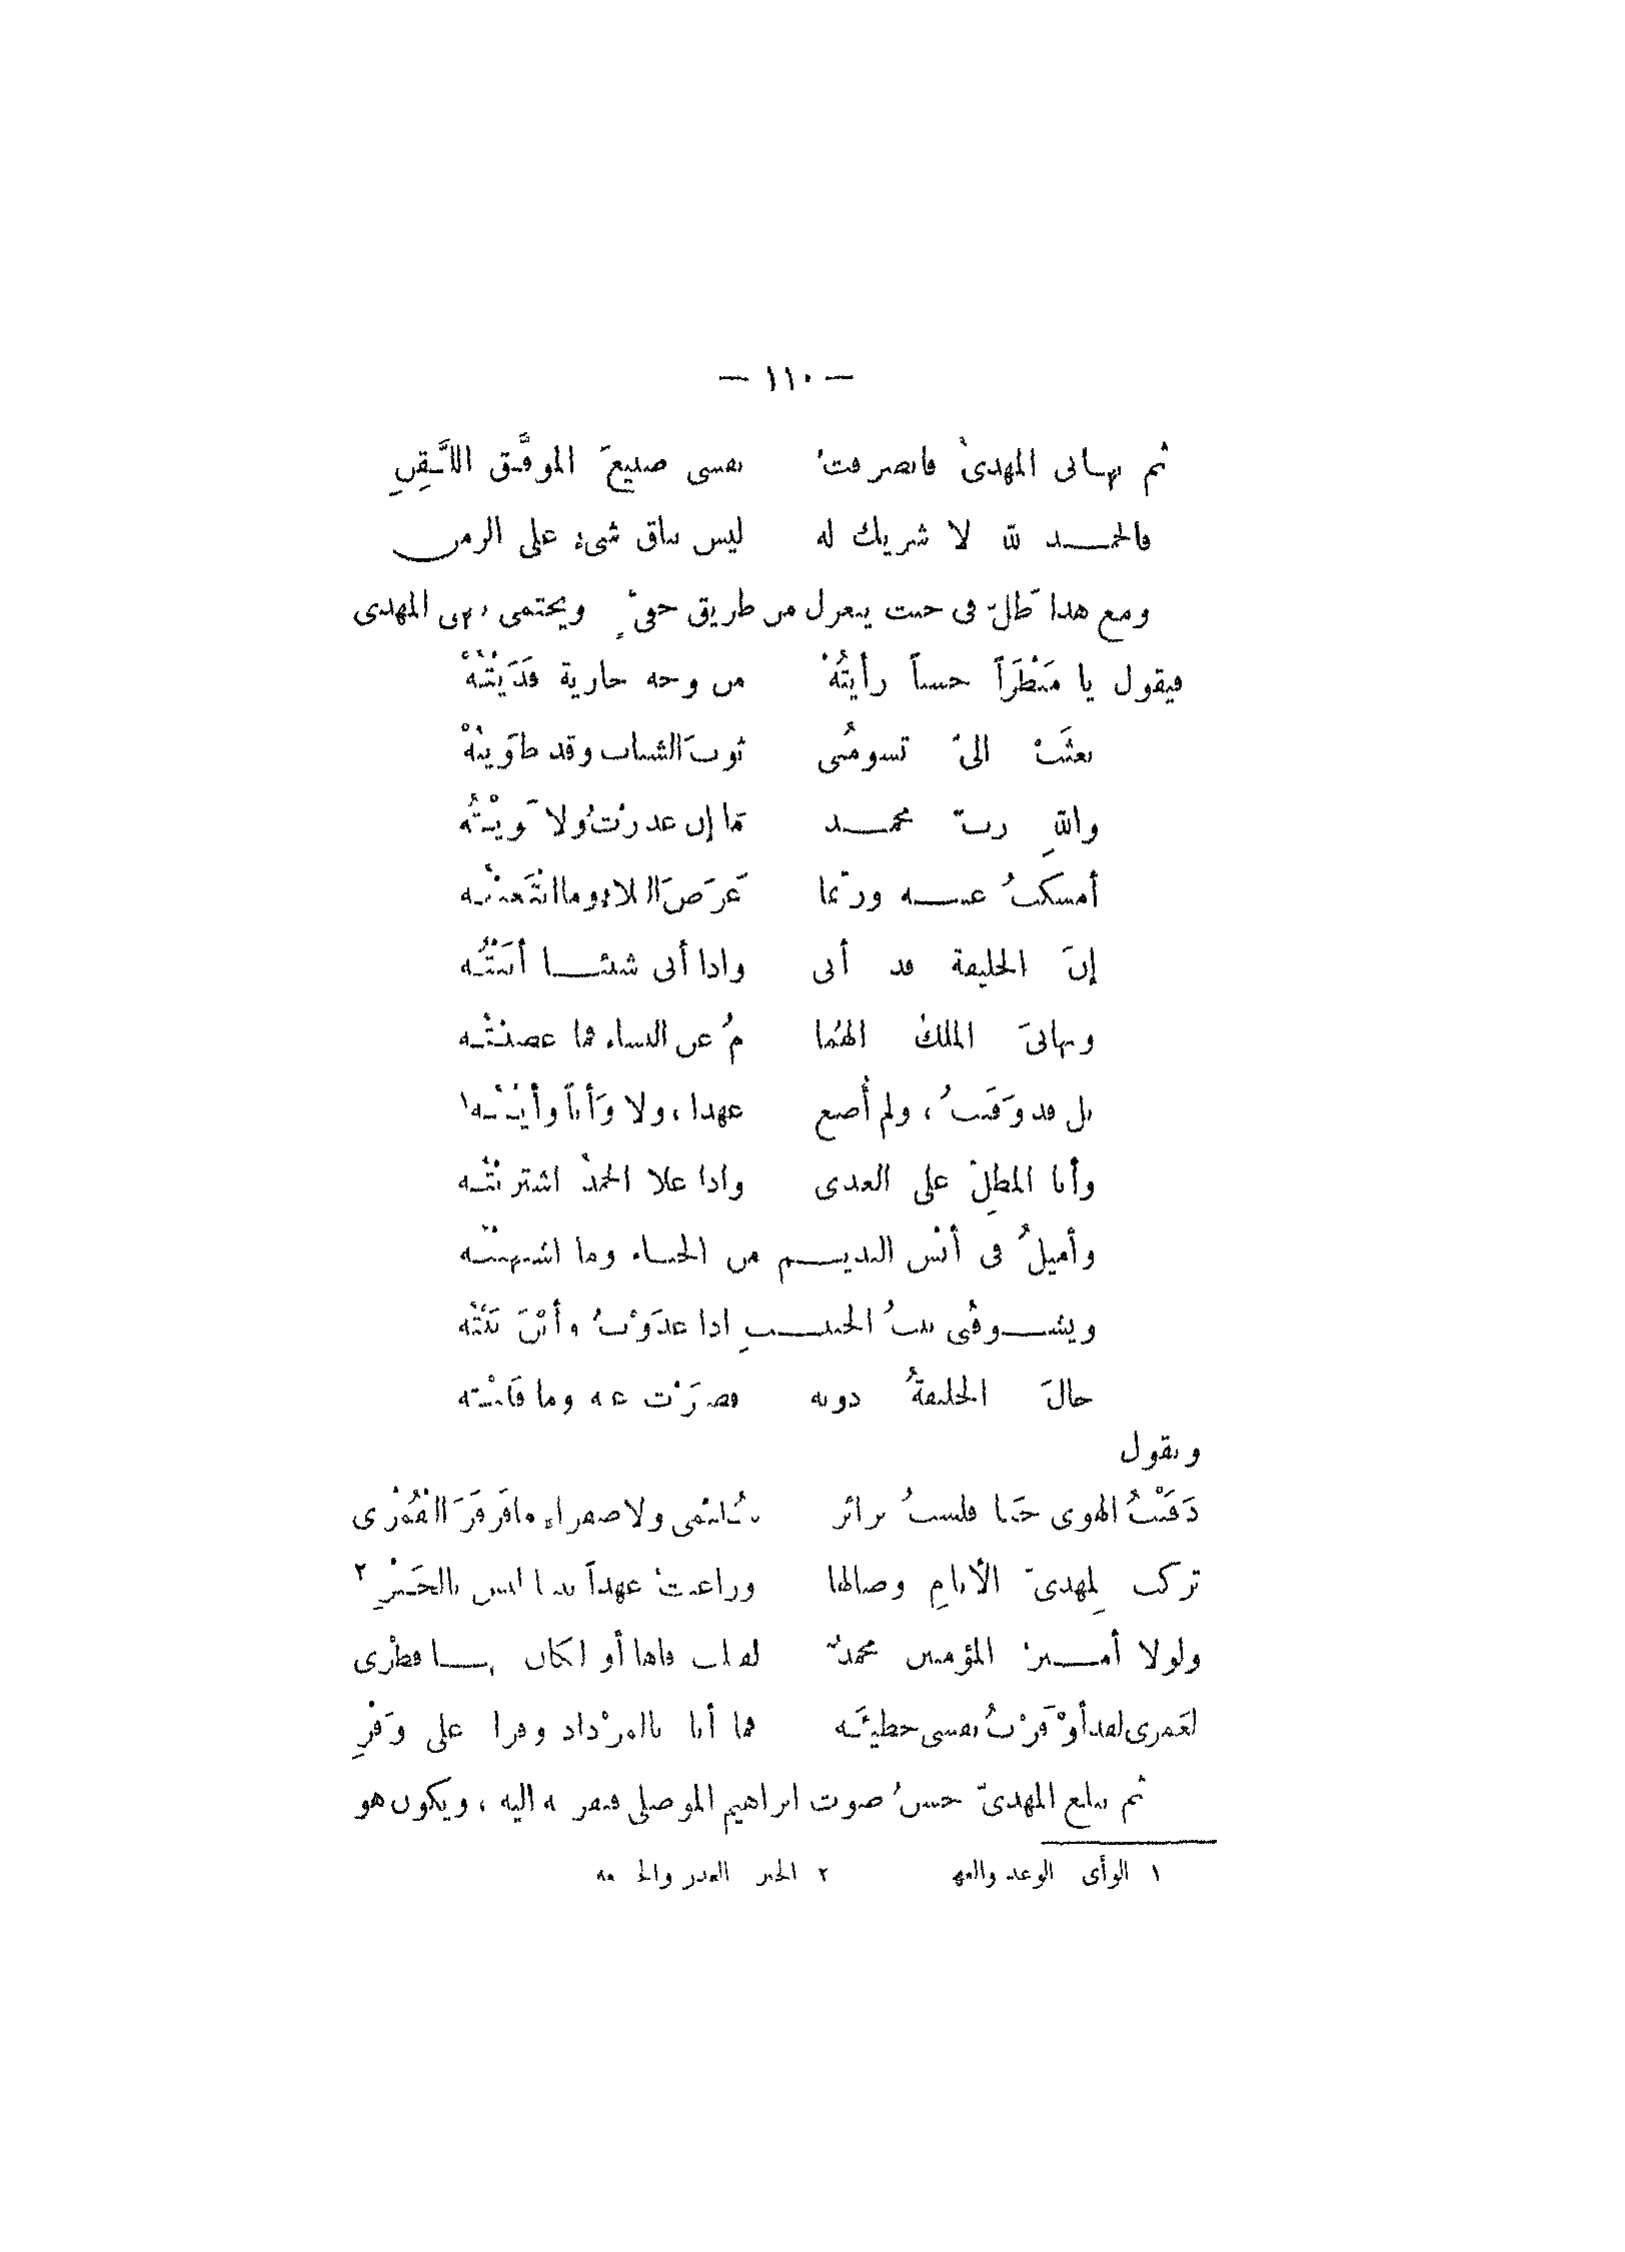 — ١١٠ —
ثم نهانى المهدىُّ فانصرفتْ نفسى صنيعَ الموفَّق اللَّقِنِ
فالحمد لله لا شريك له ليس بباق شىء على الزمن
ومع هذا ظلّ فى حبه يتغزل من طريق خفىٍّ ويحتمى بنهى المهدى
فيقول يا مَنْظَرًا حسناً رأيتُهْ من وجه جارية فَدَيْتُهْ
بعثَتْ الىّ تسومُنى ثوبَ الشباب وقد طوَيتُهْ
واللهِ ربّ محمد ما إن غدرْتُ ولا نَوَيْتُه
أمسكتُ عنه وربّما عَرَضَ البلاء وما ابْتَغَيْتُه
إنّ الخليفة قد أبى واذا أبى شيئا أبَيْتُه
ونهانىَ الملكُ الهُما مُ عن النساء فما عصيْتُه
بل قد وَفَيتُ، ولم أُضع عهدا، ولا وَأْياً وأيْتُه ١
وأنا المطِلّ على العدى واذا غلا الحمدُ اشتريْتُه
وأميلُ فى أنْس النديم من الحياء وما اشتهيْتُه
ويشوقُنى بيتُ الحبيبِ اذا غدَوْتُ وأيْنَ بَيْتُه
حالَ الخليفةُ دونه فصبَرْت عنه وما قَلَيْتُه
ويقول
دَفَنْتُ الهوى حَيّا فلستُ بزائر سُلَيْمى ولا صفراء ما قَرقَرَ القُمْرى
تركت لِمهدىّ الأنامِ وصالها وراعيتُ عهداً بيننا ليس بالخَتْرِ ٢
ولولا أميرُ المؤمنين محمدٌ لقبلت فاها أو لكان بها فطْرى
لعَمرى لقد أوْقَرْتُ نفسى خطيئَة فما أنا بالمزْداد وقرا على وَقْرِ
ثم يبلغ المهدىّ حسنُ صوت ابراهيم الموصلى فيقربه اليه، ويكون هو
١ الوأى الوعد والعهد ٢ الختر الغدر والخديعة